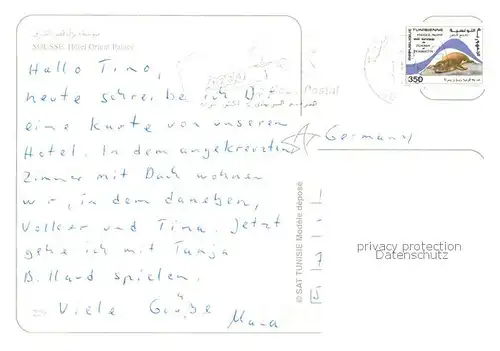 سوسة نزل قصر الشرق
SOUSSE. Hôtel Orient Palace
Hallo Timo,
heute schreibe ich Dir
eine Karte von unserem
Hotel. In dem angekreuzten
Zimmer mit Dach wohnen
wir, in dem daneben,
Volker und Tina. Jetzt
gehe ich mit Tanja
Billard spielen.
Viele Grüße
Mara
REPUBLIQUE TUNISIENNE
350
Germany
© SAT TUNISIE Modèle déposé
privacy protection
Datenschutz